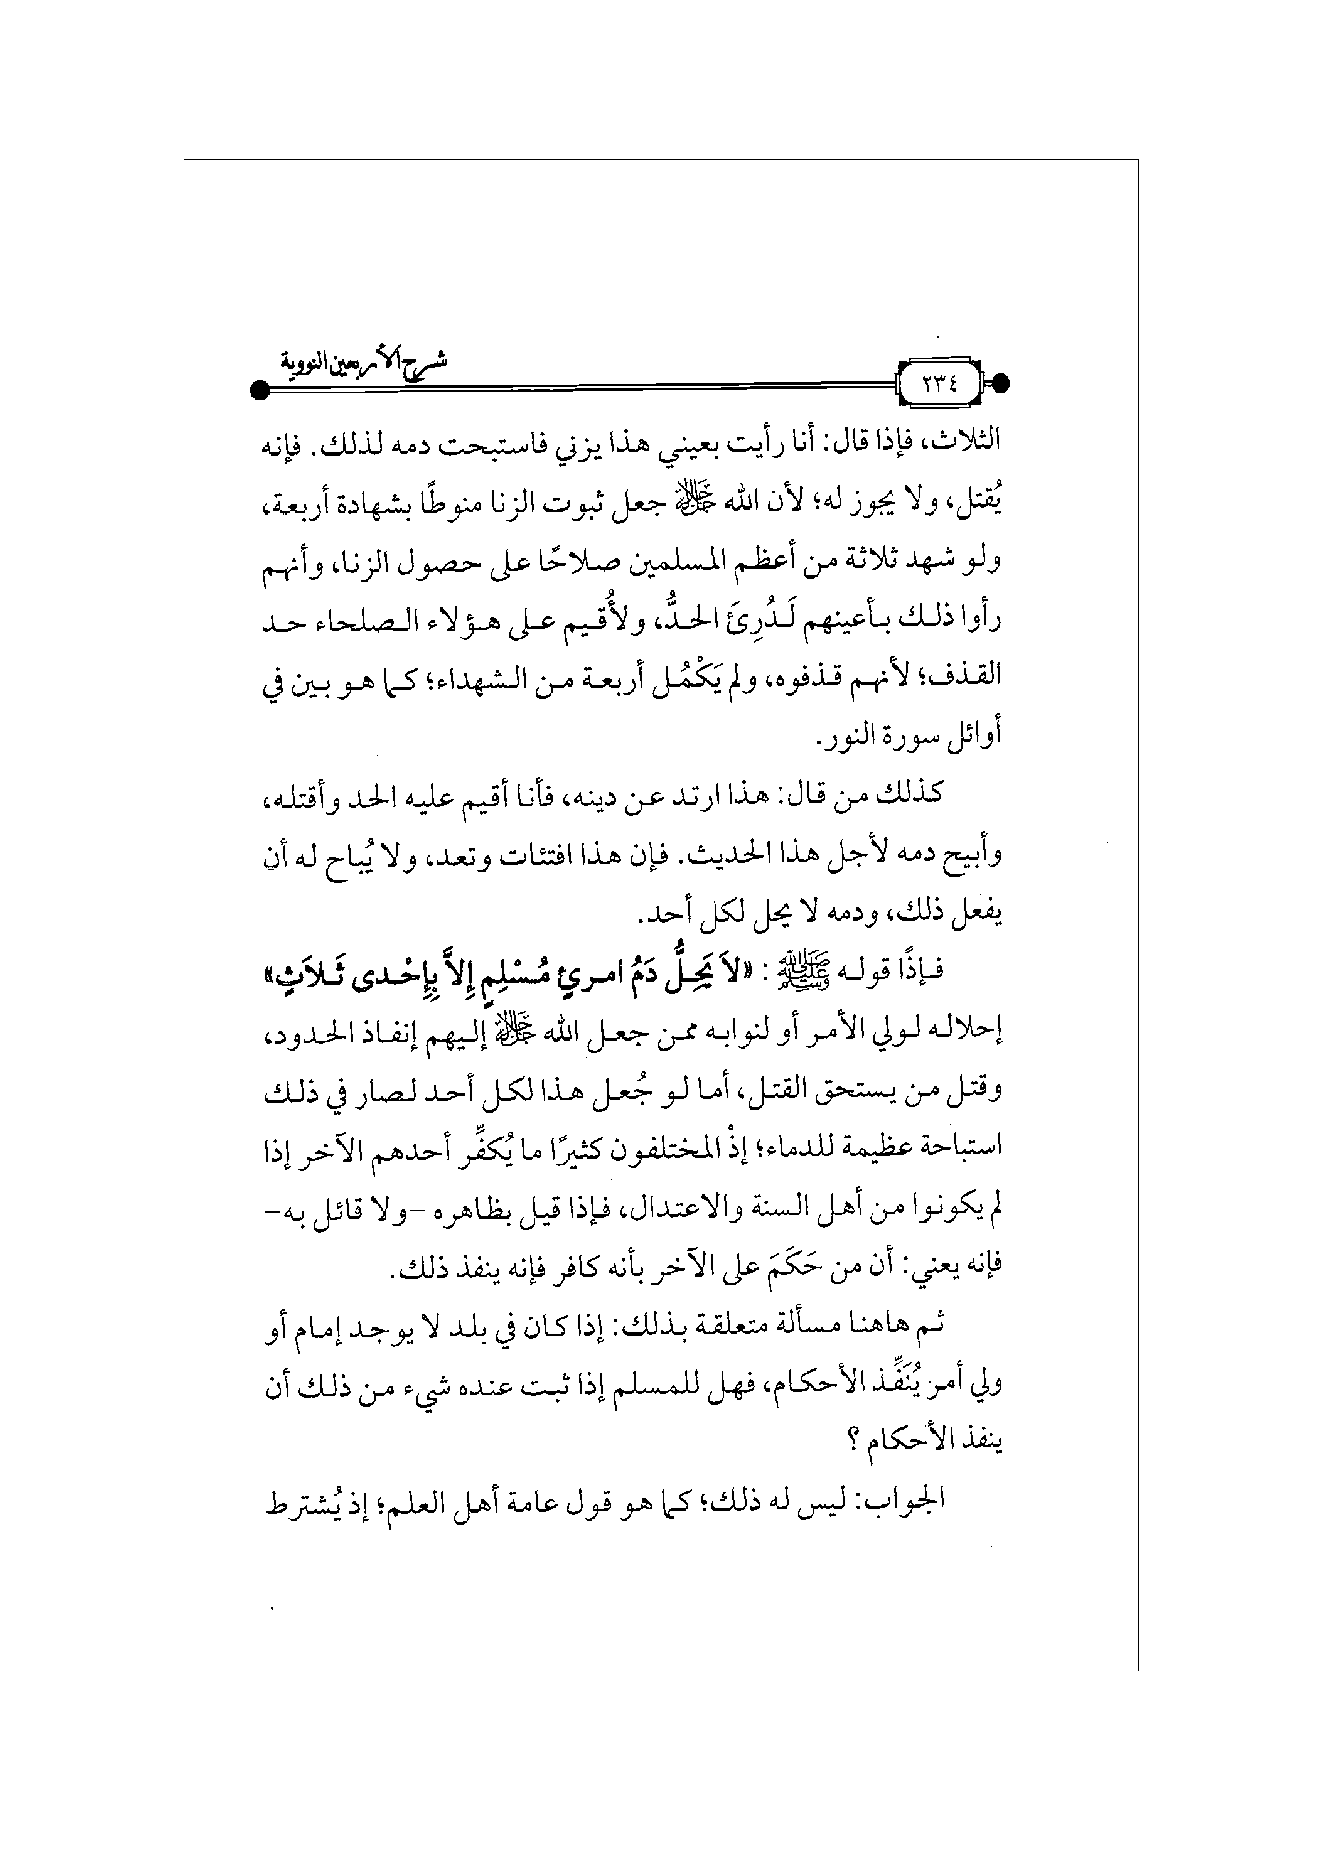 شرح الأربعين النووية
٢٣٤
الثلاث، فإذا قال: أنا رأيت بعيني هذا يزني فاستبحت دمه لذلك. فإنه
يُقتل، ولا يجوز له؛ لأن الله ﷻ جعل ثبوت الزنا منوطًا بشهادة أربعة،
ولو شهد ثلاثة من أعظم المسلمين صلاحًا على حصول الزنا، وأنهم
رأوا ذلك بأعينهم لَدُرِئَ الحدُّ، ولأُقيم على هؤلاء الصلحاء حد
القذف؛ لأنهم قذفوه، ولم يَكْمُل أربعة من الشهداء؛ كما هو بين في
أوائل سورة النور.
كذلك من قال: هذا ارتد عن دينه، فأنا أقيم عليه الحد وأقتله،
وأبيح دمه لأجل هذا الحديث. فإن هذا افتئات وتعد، ولا يُباح له أن
يفعل ذلك، ودمه لا يحل لكل أحد.
فإذًا قوله ﷺ : «لاَ يَحِلُّ دَمُ امرئٍ مُسْلِمٍ إِلاَّ بِإِحْدى ثَلاَثٍ»
إحلاله لولي الأمر أو لنوابه ممن جعل الله ﷻ إليهم إنفاذ الحدود،
وقتل من يستحق القتل، أما لو جُعل هذا لكل أحد لصار في ذلك
استباحة عظيمة للدماء؛ إذْ المختلفون كثيرًا ما يُكفِّر أحدهم الآخر إذا
لم يكونوا من أهل السنة والاعتدال، فإذا قيل بظاهره -ولا قائل به-
فإنه يعني: أن من حَكَمَ على الآخر بأنه كافر فإنه ينفذ ذلك.
ثم هاهنا مسألة متعلقة بذلك: إذا كان في بلد لا يوجد إمام أو
ولي أمر يُنَفِّذ الأحكام، فهل للمسلم إذا ثبت عنده شيء من ذلك أن
ينفذ الأحكام ؟
الجواب: ليس له ذلك؛ كما هو قول عامة أهل العلم؛ إذ يُشترط